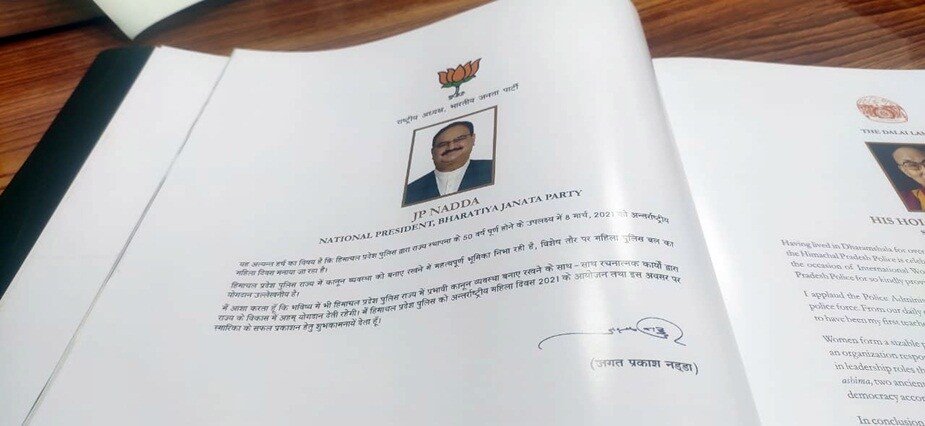 राष्ट्रीय अध्यक्ष, भारतीय जनता पार्टी
JP NADDA
NATIONAL PRESIDENT, BHARATIYA JANATA PARTY
यह अत्यन्त हर्ष का विषय है कि हिमाचल प्रदेश पुलिस द्वारा राज्य स्थापना के 50 वर्ष पूर्ण होने के उपलक्ष्य में 8 मार्च, 2021 को अन्तर्राष्ट्रीय
महिला दिवस मनाया जा रहा है।
हिमाचल प्रदेश पुलिस राज्य में कानून व्यवस्था को बनाए रखने में महत्वपूर्ण भूमिका निभा रही है, विशेष तौर पर महिला पुलिस बल का
योगदान उल्लेखनीय है।
मैं आशा करता हूँ कि भविष्य में भी हिमाचल प्रदेश पुलिस राज्य में प्रभावी कानून व्यवस्था बनाए रखने के साथ-साथ रचनात्मक कार्यों द्वारा
राज्य के विकास में अहम् योगदान देती रहेगी। मैं हिमाचल प्रदेश पुलिस को अन्तर्राष्ट्रीय महिला दिवस 2021 के आयोजन तथा इस अवसर पर
स्मारिका के सफल प्रकाशन हेतु शुभकामनायें देता हूँ।
(जगत प्रकाश नड्डा)
THE DALAI LAM
HIS HOL
Having lived in Dharamshala for over
the Himachal Pradesh Police is celeb
the occasion of International Wo
Pradesh Police for so kindly prov
I applaud the Police Admini
police force. From our daily
to have been my first teache
Women form a sizable p
an organization respo
in leadership roles th
ahimsa, two ancien
democracy accor
In conclusion